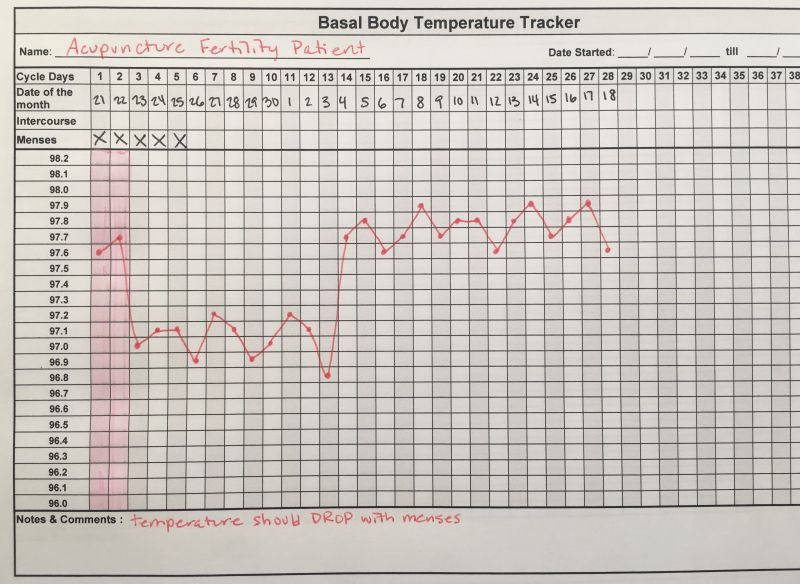 Basal Body Temperature Tracker
Name: Acupuncture Fertility Patient Date Started: ___/___/___ till ___/
Cycle Days 1 2 3 4 5 6 7 8 9 10 11 12 13 14 15 16 17 18 19 20 21 22 23 24 25 26 27 28 29 30 31 32 33 34 35 36 37 38
Date of the month 21 22 23 24 25 26 27 28 29 30 1 2 3 4 5 6 7 8 9 10 11 12 13 14 15 16 17 18
Intercourse
Menses X X X X X
98.2
98.1
98.0
97.9
97.8
97.7
97.6
97.5
97.4
97.3
97.2
97.1
97.0
96.9
96.8
96.7
96.6
96.5
96.4
96.3
96.2
96.1
96.0
Notes & Comments : temperature should DROP with menses